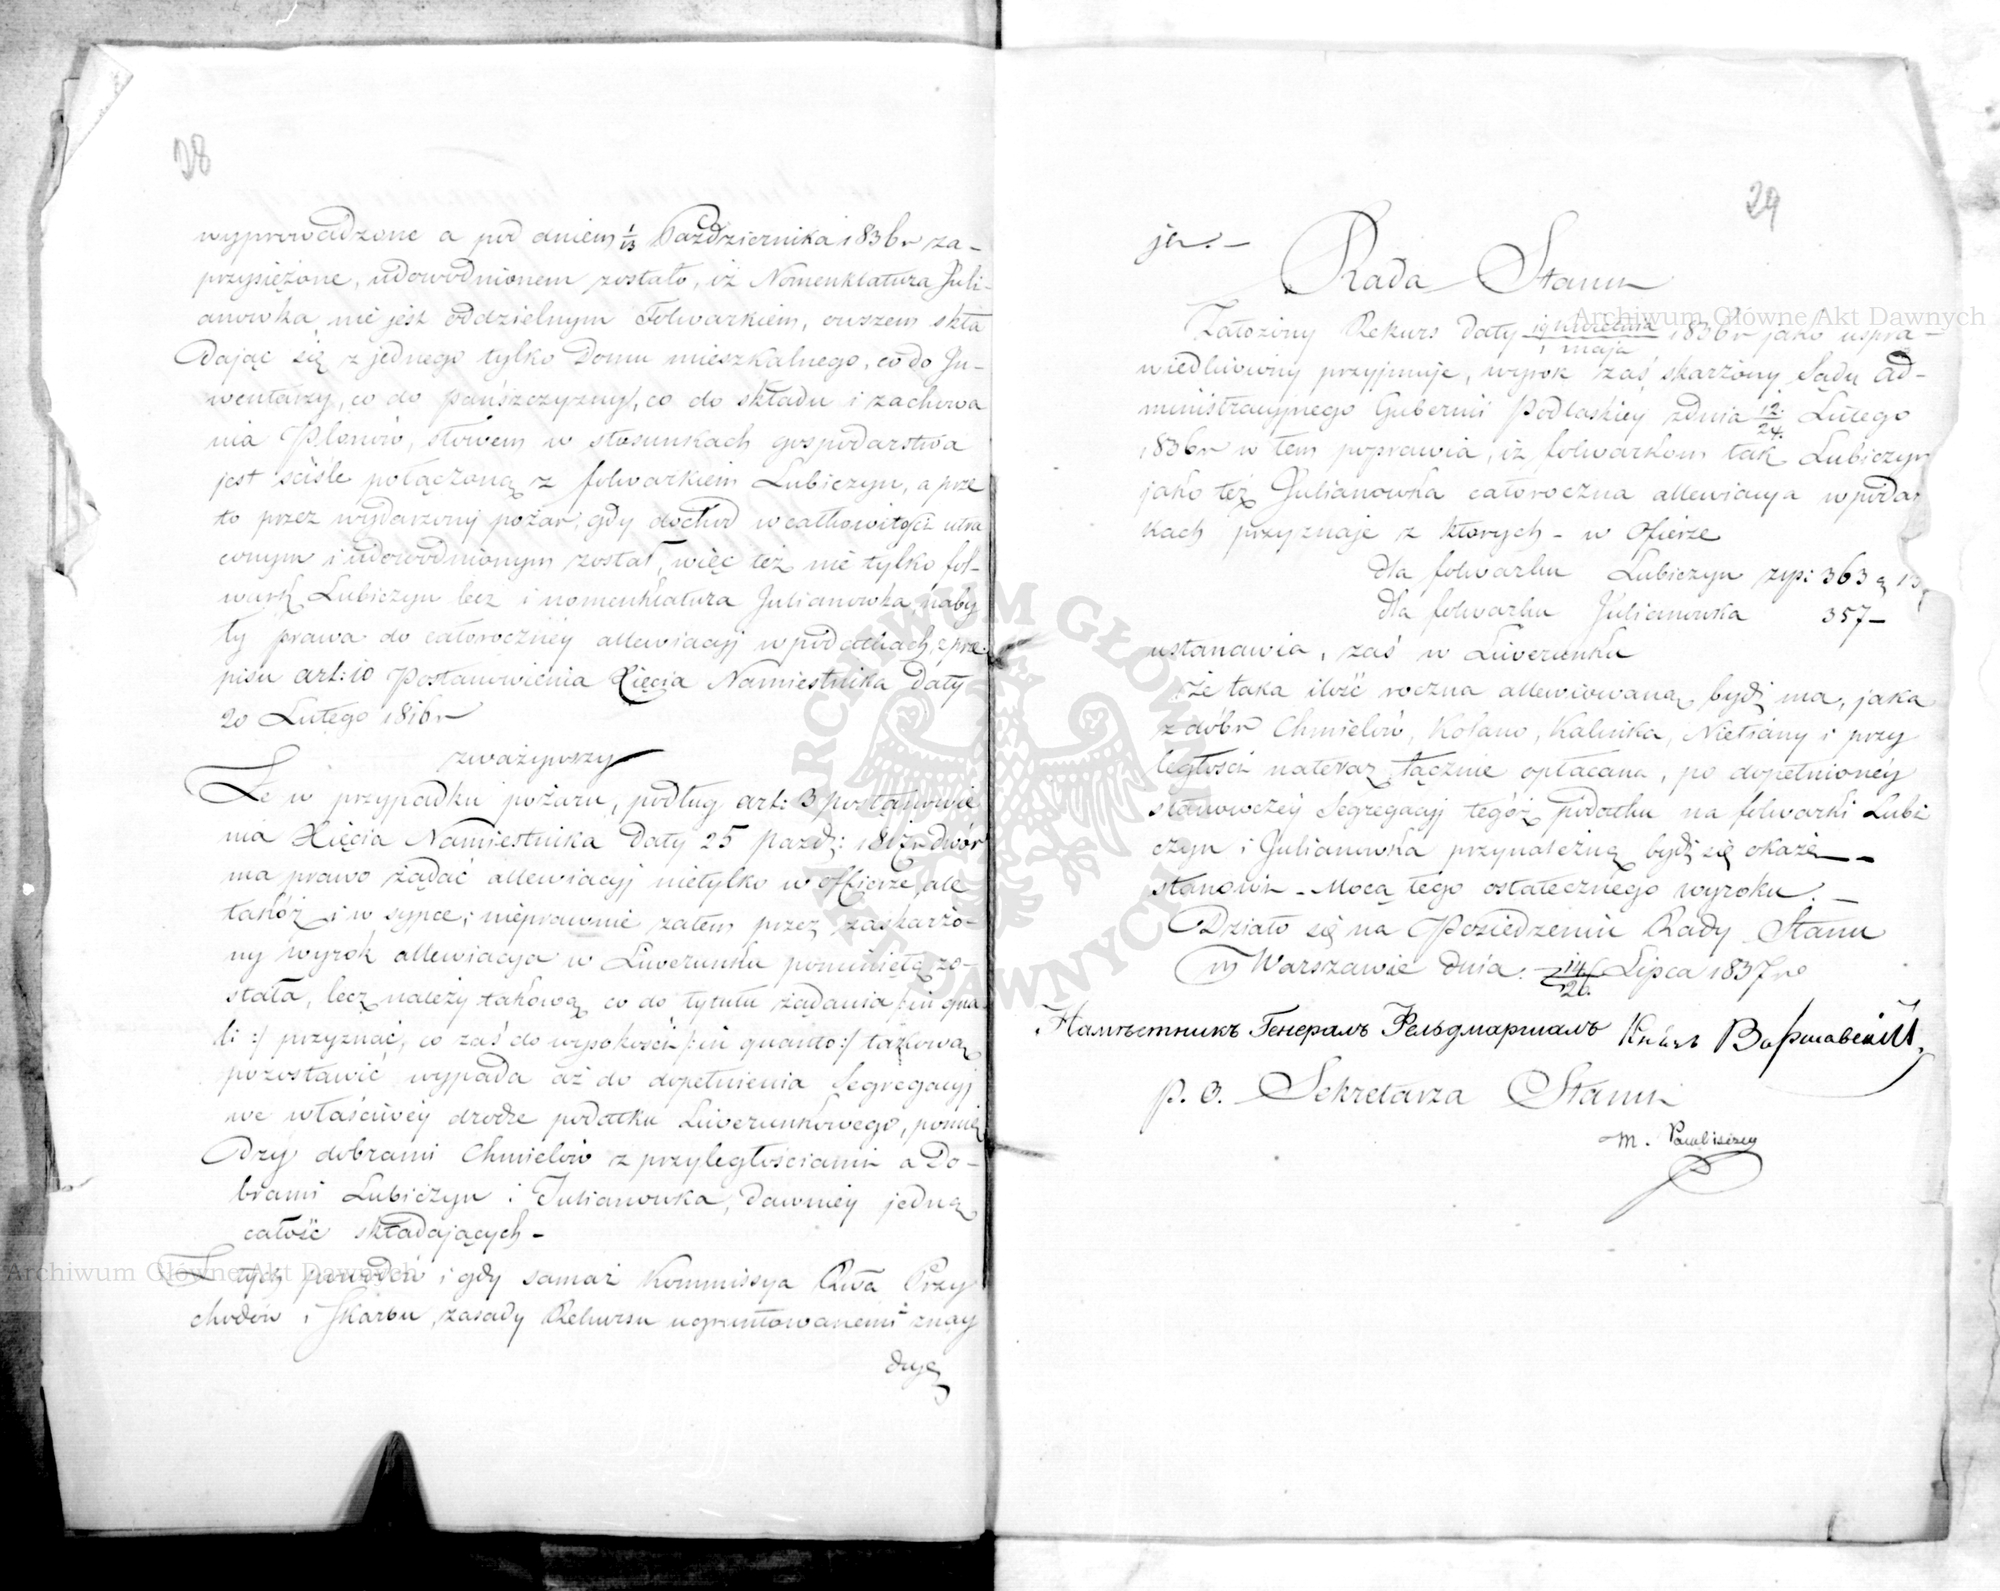 28
wyprowadzone a pod dniem 1/13 Października 1836 r za-
przysiężone, udowodnionem zostało, iż Nomenklatura Juli-
anowka, nie jest oddzielnym Folwarkiem, owszem skła
dając się z jednego tylko Domu mieszkalnego, co do In-
wentarzy, co do pańszczyzny, co do składu i zachowa
nia Plonów, słowem w stosunkach gospodarstwa
jest ściśle połączoną z folwarkiem Lubiczyn, a prze
to przez wydarzony pożar, gdy dochod w całkowitości utra
conym i udowodnionym został, więc też nie tylko fol-
wark Lubiczyn lecz i nomenklatura Julianowka, naby
ły prawa do całoroczney allewiacyj w podatkach, z prze-
pisu art: 10 Postanowienia Xięcia Namiestnika Daty
20 Lutego 1816 r
zważywszy
Że w przypadku pożaru, podług art: 3 postanowie
nia Xięcia Namiestnika Daty 25 Paźdź: 1817 r dwór
ma prawo żądać allewiacyj nietylko w offierze, ale
takóż i w sypce; nieprawnie zatem przez zaskarżo-
ny wyrok allewiacya w Liwerunku pominiętą zo-
stała, lecz należy takową, co do tytułu żądania /:in qua
li:/ przyznać, co zaś do wysokości /:in quanto:/ takową
pozostawić wypada aż do dopełnienia Segregacyj
we właściwéy drodze podatku Liwerunkowego, pomię
dzy dobrami Chmielów z przyległościami a Do-
brami Lubiczyn i Julianowka, dawniéy jedną
całość składających -
Z tych powodów i gdy sama i Kommissya Rwa Przy
chodów i Skarbu, zasady Rekursu ugruntowanemi znay
duje,
29
je. -
Rada Stanu
Założony Rekurs Daty 19 kwietnia / 1 maja 1836 r jako uspra-
wiedliwiony przyjmuje, wyrok zaś skarżony Sądu Ad-
ministracyjnego Gubernii Podlaskiéy z dnia 12/24 Lutego
1836 r w tem poprawia, iż folwarkom tak Lubiczyn
jako też Julianowka całoroczna allewiacya w podat
kach przyznaje z ktorych - w Ofierze
dla folwarku Lubiczyn zyp: 363 g 13
dla folwarku Julianowka 357 -
ustanawia, zaś w Liwerunku
że taka ilość roczna allewiowaną bydź ma, jaka
z dóbr Chmielów, Kolano, Kalinka, Nietiahy i przy
ległości na teraz łącznie opłacana, po dopełnionéy
stanowczéy Segregacyj tegóż podatku na folwarki Lubi
czyn i Julianowka przynależną bydź się okaże -
stanowi - Mocą tego ostatecznego wyroku. -
Działo się na Posiedzeniu Rady Stanu
w Warszawie dnia 14/26 Lipca 1837 ro
Намѣстникъ Генералъ Фельдмаршалъ Князь Варшавскій.
p. o. Sekretarza Stanu
M. Pawliszczy
Archiwum Główne Akt Dawnych
Archiwum Główne Akt Dawnych
ARCHIWUM GŁÓWNE AKT DAWNYCH